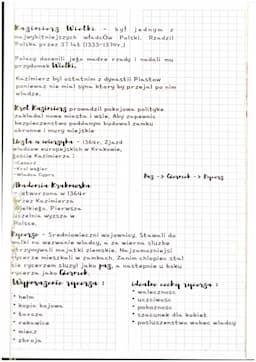 Kazimierz Wielki - był jednym z
najwybitniejszych władców Polski. Rządził
Polską przez 37 lat (1333-1370r.)
Polacy docenili jego mądre rządy i nadali mu
przydomek Wielki.
Kazimierz był ostatnim z dynastii Piastów
ponieważ nie miał syna który by przejął po nim
władzę.
Król Kazimierz prowadził pokojową politykę
zakładał nowe miasta i wsie. Aby zapewnić
bezpieczeństwo poddanym budował zamki
obronne i mury miejskie
Uczta u wierzynka - 1364r. Zjazd
władców europejskich w Krakowie,
goście Kazimierza :
-Cesarz
-Król węgier
-Władca Cypru
Paź -> Giermek -> Rycerz
Akademia Krakowska
- utworzona w 1364r
przez Kazimierza
Wielkiego. Pierwsza
uczelnia wyższa w
Polsce.
Rycerze - Średniowieczni wojownicy. Stawali do
walki na wezwanie władcy, a za wierną służbę
otrzymywali majątki ziemskie. Najzamożniejsi
rycerze mieszkali w zamkach. Zanim chłopiec stał
się rycerzem służył jako paź, a następnie u boku
rycerza jako Giermek.
Wyposażenie rycerza :
* hełm
* kopia bojowa
* tarcza
* rękawice
* miecz
* zbroja
idealne cechy rycerza :
* waleczność
* uczciwość
* pobożność
* szacunek dla kobiet
* posłuszeństwo wobec władcy